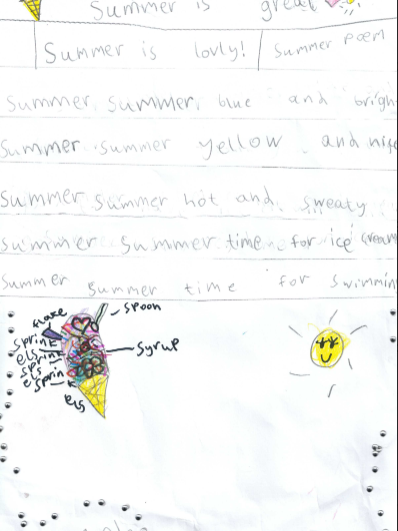 Summer is great
Summer is lovly!
Summer poem
Summer summer blue and brigh
Summer summer yellow and nise
Summer summer hot and sweaty
Summer summer time for ice cream
Summer summer time for swimmin
flake
spoon
sprink
els
syrup
sprin
els
sprin
els